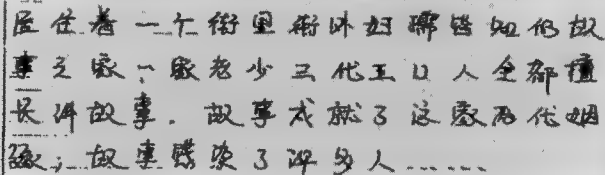 居住着一个街里街外妇孺皆知的故
事之家，一家老少三代五口人全都擅
长讲故事。故事成就了这家两代姻
缘；故事感染了许多人……